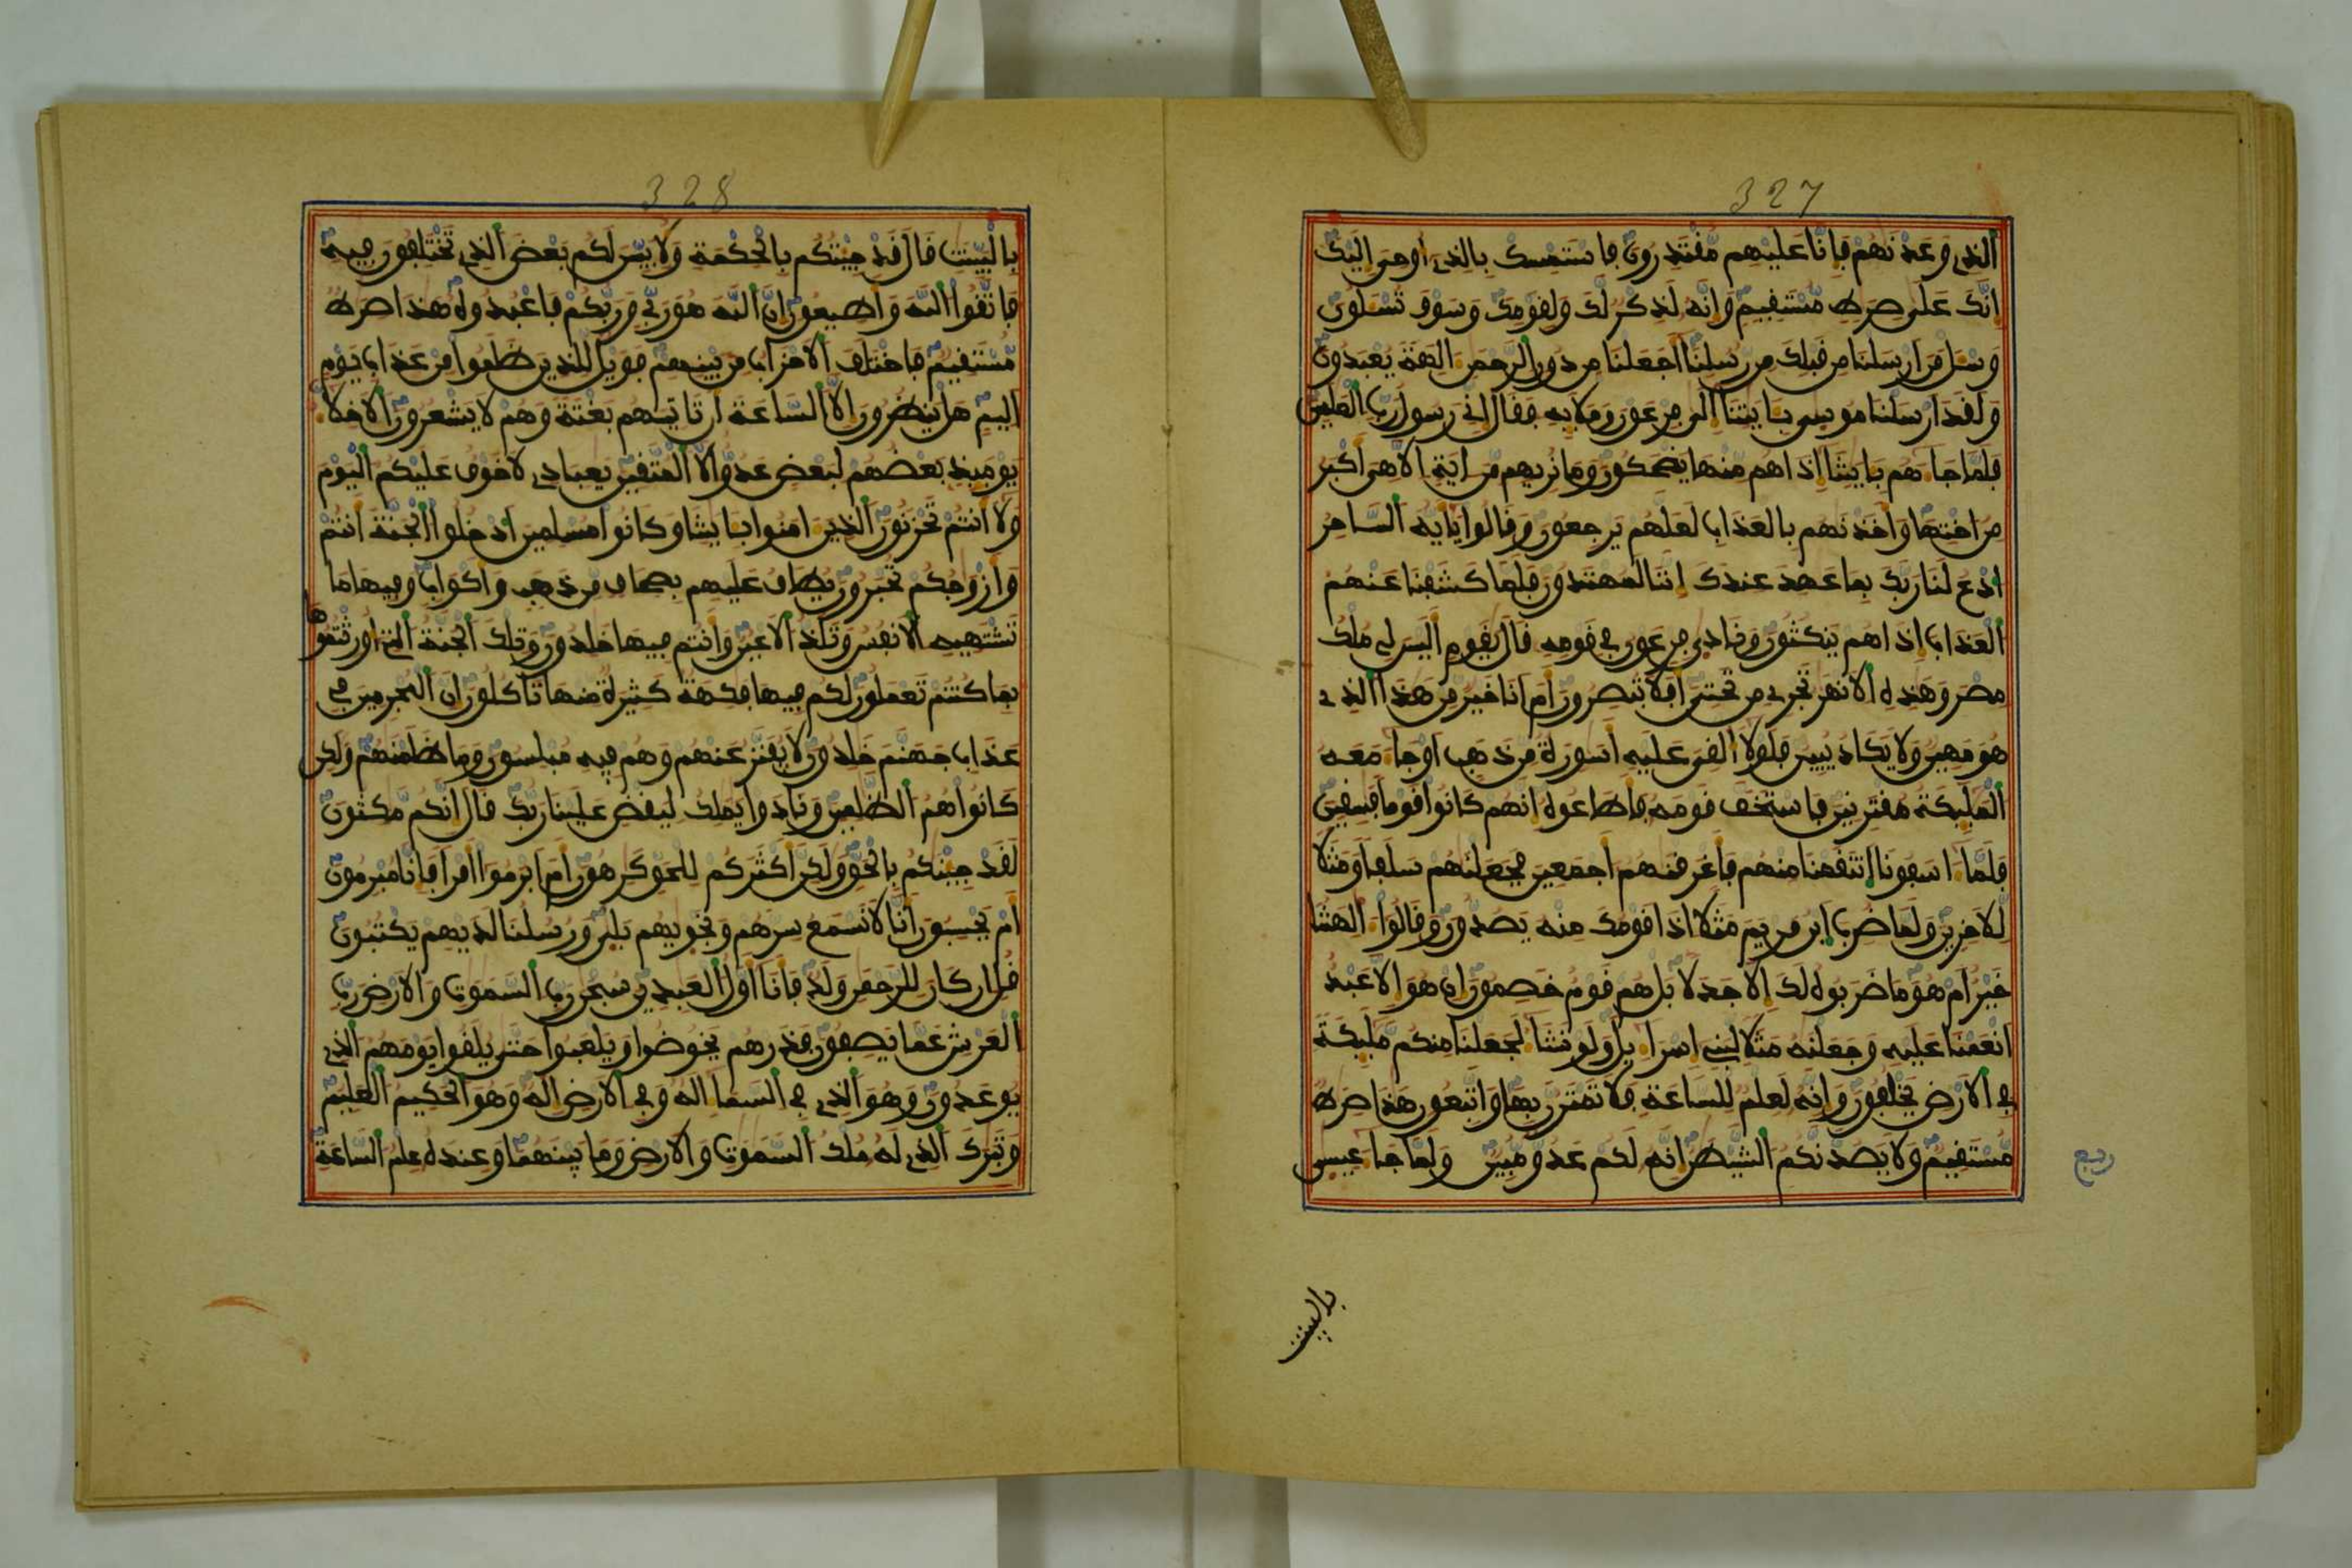 327
الذے وعدنهم فإنا عليهم مفتدرون فاستمسك بالذے أوحى إليك
إنك على صرط مستفيم وإنه لذكر لك ولفومك وسوف تسلون
وسل من أرسلنا من فبلك من رسلنا أجعلنا من دون الرحمن ءالهة يعبدون
ولفد أرسلنا موسى بـايتنا إلى فرعون وملإيه ففال إنے رسول رب العلمين
فلما جاءهم بـايتنا إذا هم منها يضحكون وما نريهم من ءاية إلا هى أكبر
من أختها وأخذنهم بالعذاب لعلهم يرجعون وفالوا يأيه الساحر
ادع لنا ربك بما عهد عندك إننا لمهتدون فلما كشفنا عنهم
العذاب إذا هم ينكثون ونادى فرعون في فومه فال يفوم أليس لے ملك
مصر وهذه الانهر تجرے من تحتى أفلا تبصرون أم أنا خير من هذا الذے
هو مهين ولا يكاد يبين فلولا ألفى عليه أسورة من ذهب أو جاء معه
المليكة مفترنين فاستخف فومه فأطاعوه إنهم كانوا فوما فسفين
فلما ءاسفونا انتفمنا منهم فأغرفنهم أجمعين فجعلنهم سلفا ومثلا
للاخرين ولما ضرب ابن مريم مثلا اذا فومك منه يصدون وفالوا ءالهتنا
خير أم هو ما ضربوه لك إلا جدلا بل هم فوم خصمون إن هو إلا عبد
انعمنا عليه وجعلنه مثلا لبنے إسراءيل ولو نشاء لجعلنا منكم مليكة
في الارض يخلفون وإنه لعلم للساعة فلا تمترن بها واتبعون هذا صرط
مستفيم ولا يصدنكم الشيطن إنه لكم عدو مبين ولما جاء عيسى
ربع
بالبينت
328
بالبينت فال فد جيتكم بالحكمة ولابين لكم بعض الذے تختلفون فيه
فاتفوا الله وأطيعون إن الله هو ربے وربكم فاعبدوه هذا صرط
مستفيم فاختلف الاحزاب من بينهم فويل للذين ظلموا من عذاب يوم
اليم هل ينظرون إلا الساعة أن تاتيهم بغتة وهم لا يشعرون الاخلاء
يوميذ بعضهم لبعض عدو الا المتفين يعبادے لا خوف عليكم اليوم
ولا أنتم تحزنون الذين ءامنوا بـايتنا وكانوا مسلمين ادخلوا الجنة أنتم
وأزوجكم تحبرون يطاف عليهم بصحاف من ذهب وأكواب وفيها ما
تشتهيه الانفس وتلذ الاعين وأنتم فيها خلدون وتلك الجنة التے أورثتموها
بما كنتم تعملون لكم فيها فكهة كثيرة منها تاكلون إن المجرمين في
عذاب جهنم خلدون لا يفتر عنهم وهم فيه مبلسون وما ظلمنهم ولكن
كانوا هم الظلمين ونادوا يملك ليفض علينا ربك فال إنكم مكثون
لفد جينكم بالحق ولكن أكثركم للحق كرهون أم ابرموا أمرا فإنا مبرمون
أم يحسبون أنا لا نسمع سرهم ونجويهم بلى ورسلنا لديهم يكتبون
فل ان كان للرحمن ولد فأنا أول العبدين سبحن رب السموت والارض رب
العرش عما يصفون فذرهم يخوضوا ويلعبوا حتى يلفوا يومهم الذے
يوعدون وهو الذے في السماء اله وفي الارض اله وهو الحكيم العليم
وتبرك الذے له ملك السموت والارض وما بينهما وعنده علم الساعة